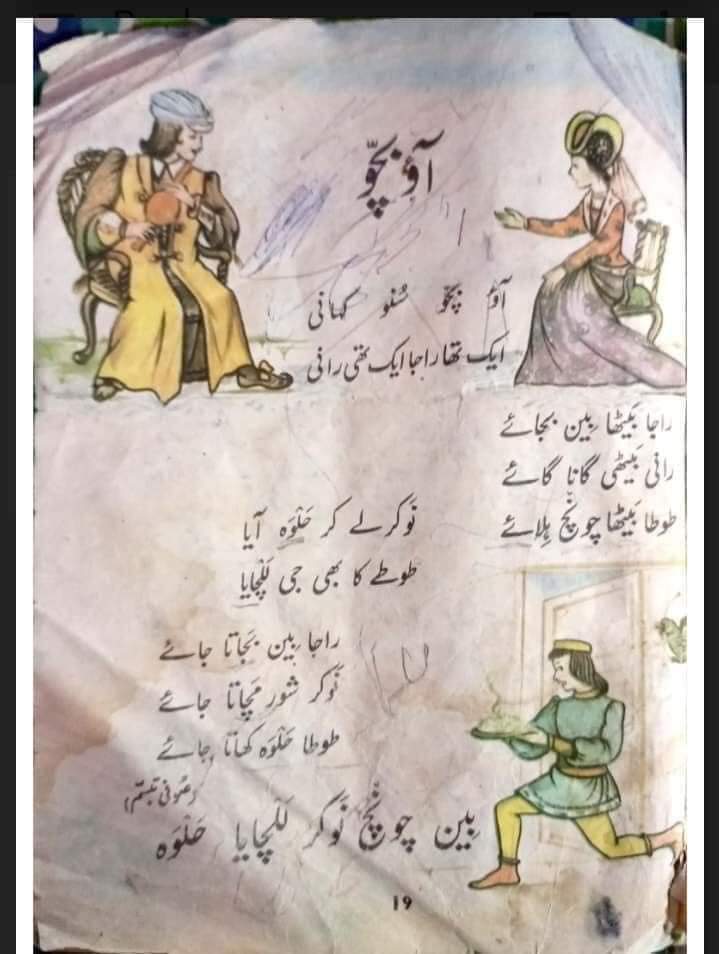 آؤ بچّو
آؤ بچّو سُنو کہانی
ایک تھا راجا ایک تھی رانی
راجا بَیٹھا بِین بجائے
رانی بَیٹھی گانا گائے
طوطا بَیٹھا چونچ ہِلائے
نَوکر لے کر حَلْوَہ آیا
طوطے کا بھی جی لَلْچایا
راجا بِین بَجاتا جائے
نَوکر شور مَچاتا جائے
طوطا حَلْوَہ کھاتا جائے
(صُوفی تبسّم)
بِین چونچ نَوکر لَلْچایا حَلْوَہ
19